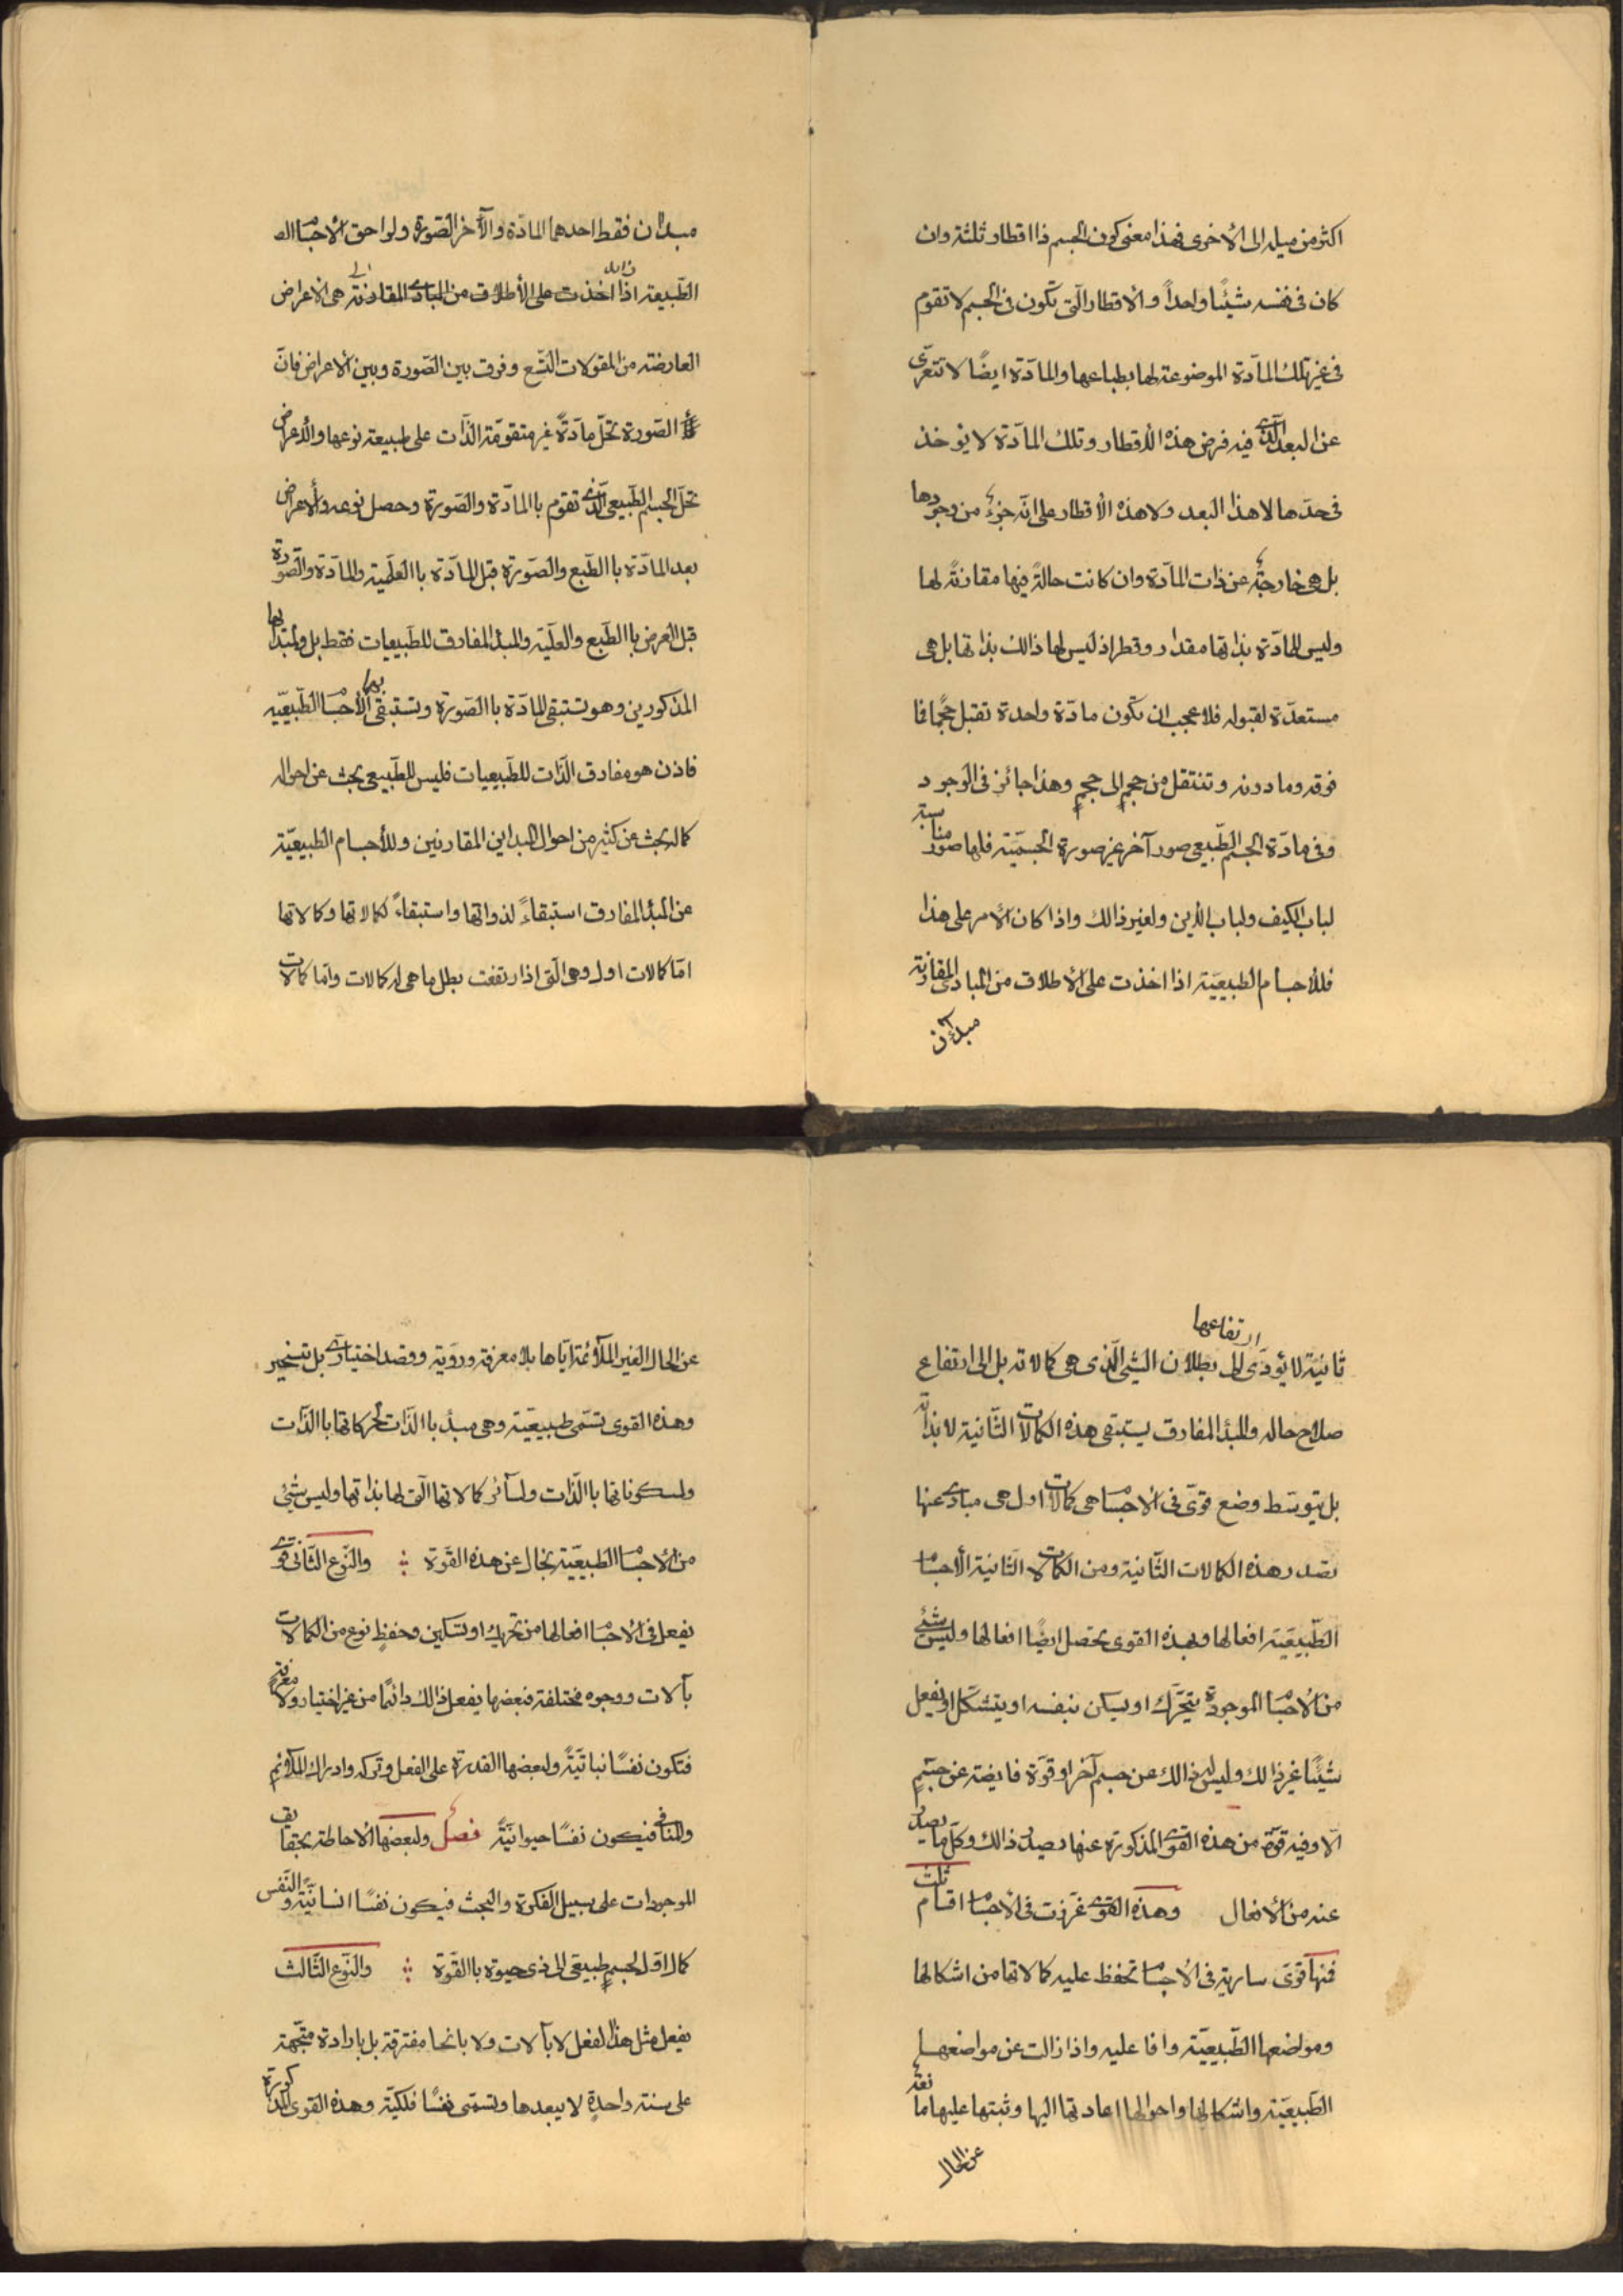 اكثر من ميله الى الأخرى فهذا معنى كون الجسم ذا اقطار ثلثة وان
كان فى نفسه شيئًا واحداً والاقطار الّتى تكون فى الجسم لا تقوم
فى غير تلك المادّة الموضوعة لها بطباعها والمادّة ايضًا لا تتعرّى
عن البعد الّذى فيه فرض هذه الاقطار وتلك المادّة لا يؤخذ
فى حدّها لا هذا البعد ولا هذه الأقطار على انّه جزء من وجودها
بل هى خارجة عن ذات المادّة وان كانت حالةً فيها مقارنةً لها
وليس للمادّة بذاتها مقدار وقطر اذ ليس لها ذالك بذاتها بل هى
مستعدّة لقبوله فلا عجب ان تكون مادّة واحدة تقبل حجمًا فا
فوقه وما دونه وتنتقل من حجمٍ الى حجمٍ وهذا جائز فى الوجود
وفى مادّة الجسم الطّبيعى صور آخر غير صورة الجسميّة فلها صور مناسبة
لباب الكيف ولباب الأين ولغير ذالك واذا كان الأمر على هذا
فللأجسام الطبيعيّة اذا اخذت على الأطلاق من المبادى المقارنة
مبدان
مبدان فقط احدهما المادّة والآخر الصّورة ولواحق الأجسام
الطّبيعة اذا اخذت على الأطلاق من المبادى المقارنة هى الاعراض
العارضة من المقولات التّسع وفرق بين الصّورة وبين الأعراض فانّ
الصّورة تحلّ مادّةً غير متقوّمة الذّات على طبيعة نوعها والأعراض
تحلّ الجسم الطّبيعى الّذى تقوم باالمادّة والصّورة وحصل نوعه والأعراض
بعد المادّة باالطّبع والصّورة قبل المادّة باالعلّية والمادّة والصّورة
قبل العرض باالطّبع والعلّية والمبدأ المفارق للطّبيعيات فقط بل ولمبدأيها
المذكورين وهو تستبقى المادّة باالصّورة وتستبقى بهما الأجسام الطّبيعيّة
فاذن هو مفارق الذّات للطّبيعيات فليس للطّبيعى بحث عن احواله
كما له بحث عن كثير من احوال المبداين المقارنين وللأجسام الطبيعيّة
عن المبدأ المفارق استبقاءً لذواتها واستبقاءً لكمالاتها وكمالاتها
امّا كمالات اول وهى الّتى اذا ارتفعت بطل ما هى له كمالات وامّا كمالات
ثانيّة لا يؤدّى ارتفاعها الى بطلان الشيئ الّذى هى كمالاته بل الى ارتفاع
صلاح حاله والمبدأ المفارق يستبقى هذه الكمالات الثّانية لا بذاته
بل بتوسّط وضع قوّى فى الاجسام هى كمالات اول هى مبادى عنها
تصدر هذه الكمالات الثّانية ومن الكمالات الثّانية الأجسام
الطّبيعيّة افعالها وبهذه القوى تحصل ايضًا افعالها وليس شئى
من الأجسام الموجودة يتحرّك او يسكن بنفسه او يتشكّل او يفعل
شيئًا غير ذالك وليس له ذالك عن جسم آخر او قوّة فايضة عن جسمٍ
الّا وفيه قوّة من هذه القوى المذكورة عنها يصدر ذالك وكلّ ما يصدر
عنه من الأفعال وهذه القوى غرزت فى الأجسام اقسام ثلث
فمنها قوّى سارية فى الأجسام تحفظ عليه كمالاتها من اشكالها
ومواضعها الطّبيعيّة وافا عليه واذا زالت عن مواضعها
الطّبيعيّة واشكالها واحوالها اعادتها اليها وثبتها عليها مانعة
عن الحال
عن الحال الغير الملآئمة ايّاها بلا معرفة وروّية وقصد اختيارى بل تسخير
وهذه القوى تسمّى طبيعيّة وهى مبدأ باالذّات لحركاتها باالذّات
ولسكوناتها باالذّات ولسآئر كمالاتها الّتى لها بذاتها وليس شيئ
من الأجسام الطبيعيّة بخال عن هذه القوّة والنّوع الثّانى قوى
يفعل فى الأجسام افعالها من تحريك او تسكين وحفظ نوع من الكمالات
بآلات ووجوه مختلفة فبعضها يفعل ذالك دائمًا من غير اختيار ولا معرفة
فتكون نفسًا نباتيّةً ولبعضها القدرة على الفعل وتركه وادراك الملآئم
والمنافى فيكون نفسًا حيوانيّةً فصل ولبعضها الأحاطة بحقايق
الموجودات على سبيل الفكرة والبحث فيكون نفسًا انسانيّة والنّفس
كمال اوّل لجسمٍ طبيعىّ الى ذى حيوة باالقوّة والنّوع الثّالث
يفعل مثل هذا الفعل لا بآلات ولا بانحا مفترقة بل بارادة متّجهة
على سنة واحدةٍ لا يبعدها وتسمّى نفسًا فلكيّة وهذه القوى المذكورة